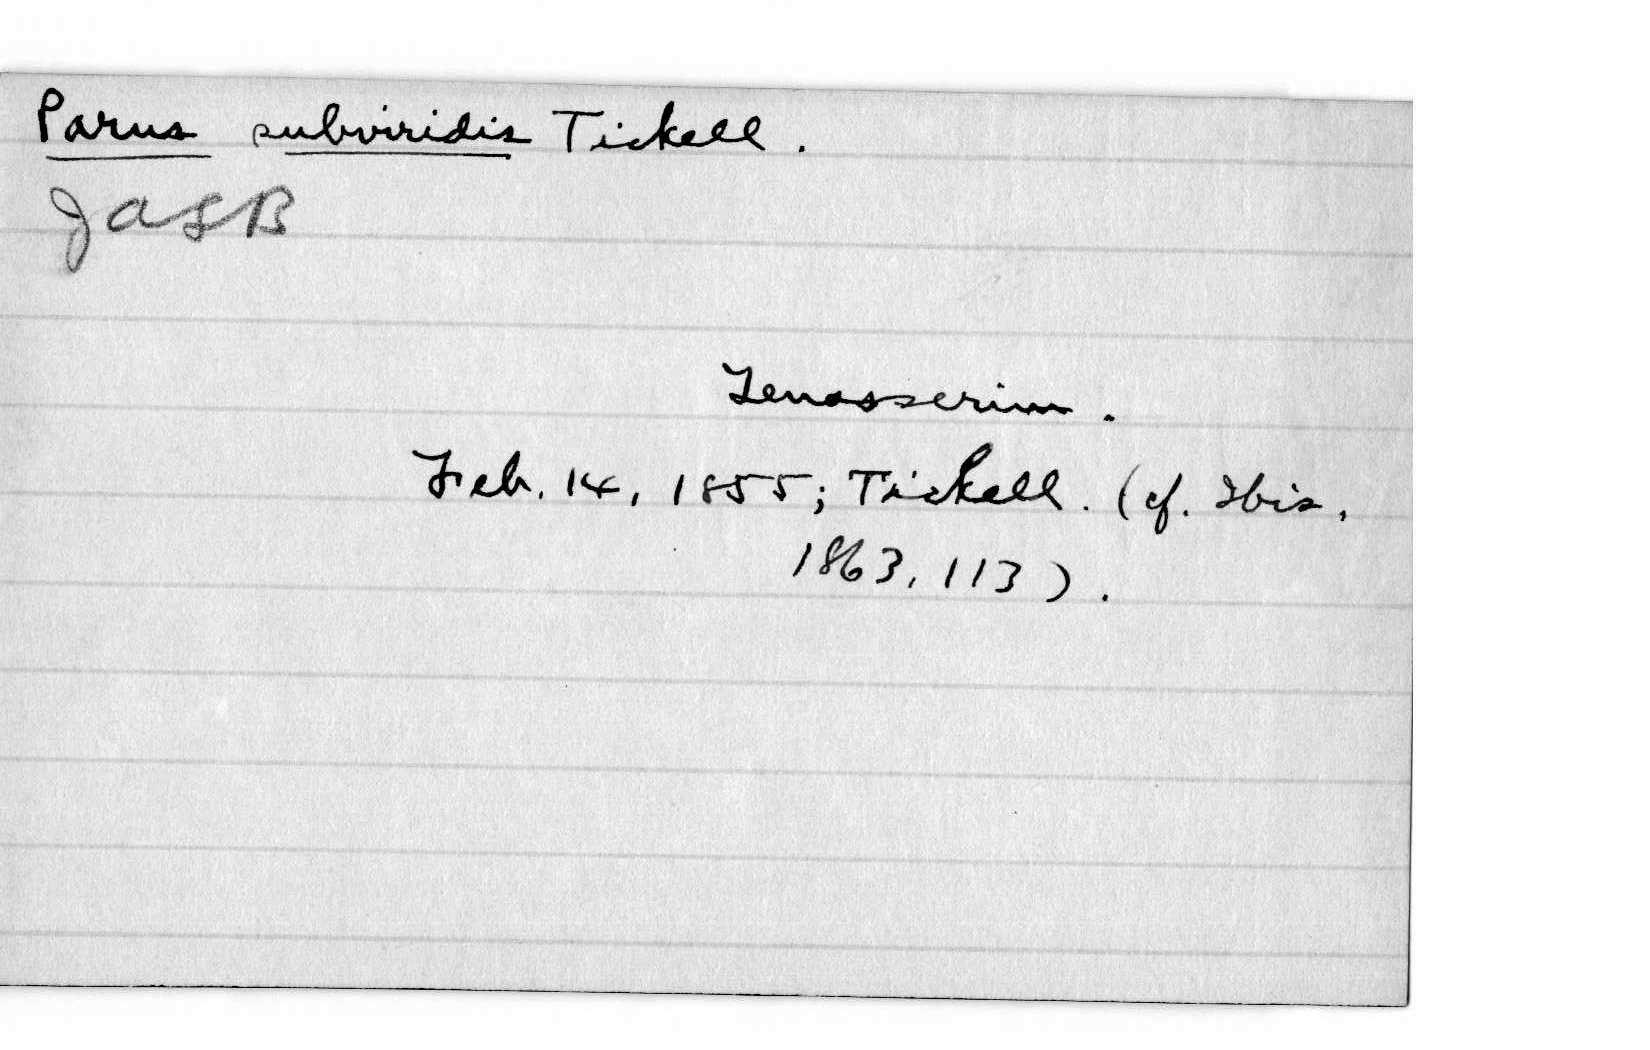 Parus subviridis Tickell.
JASB
Tenasserim.
Feb. 14, 1855; Tickell. (cf. Ibis,
1863, 113).